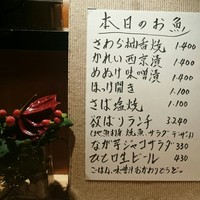 本日のお魚
さわら柚香焼 1.400
かれい西京漬 1.400
めぬけ味噌漬 1.400
ほっけ開き 1.100
さば塩焼 1.100
欲ばりランチ 3240
焼魚 サラダ デザート
なが芋ジャコサラダ 330
ひとロ生ビール 430
ごはん、味噌汁おかわりどうぞ。